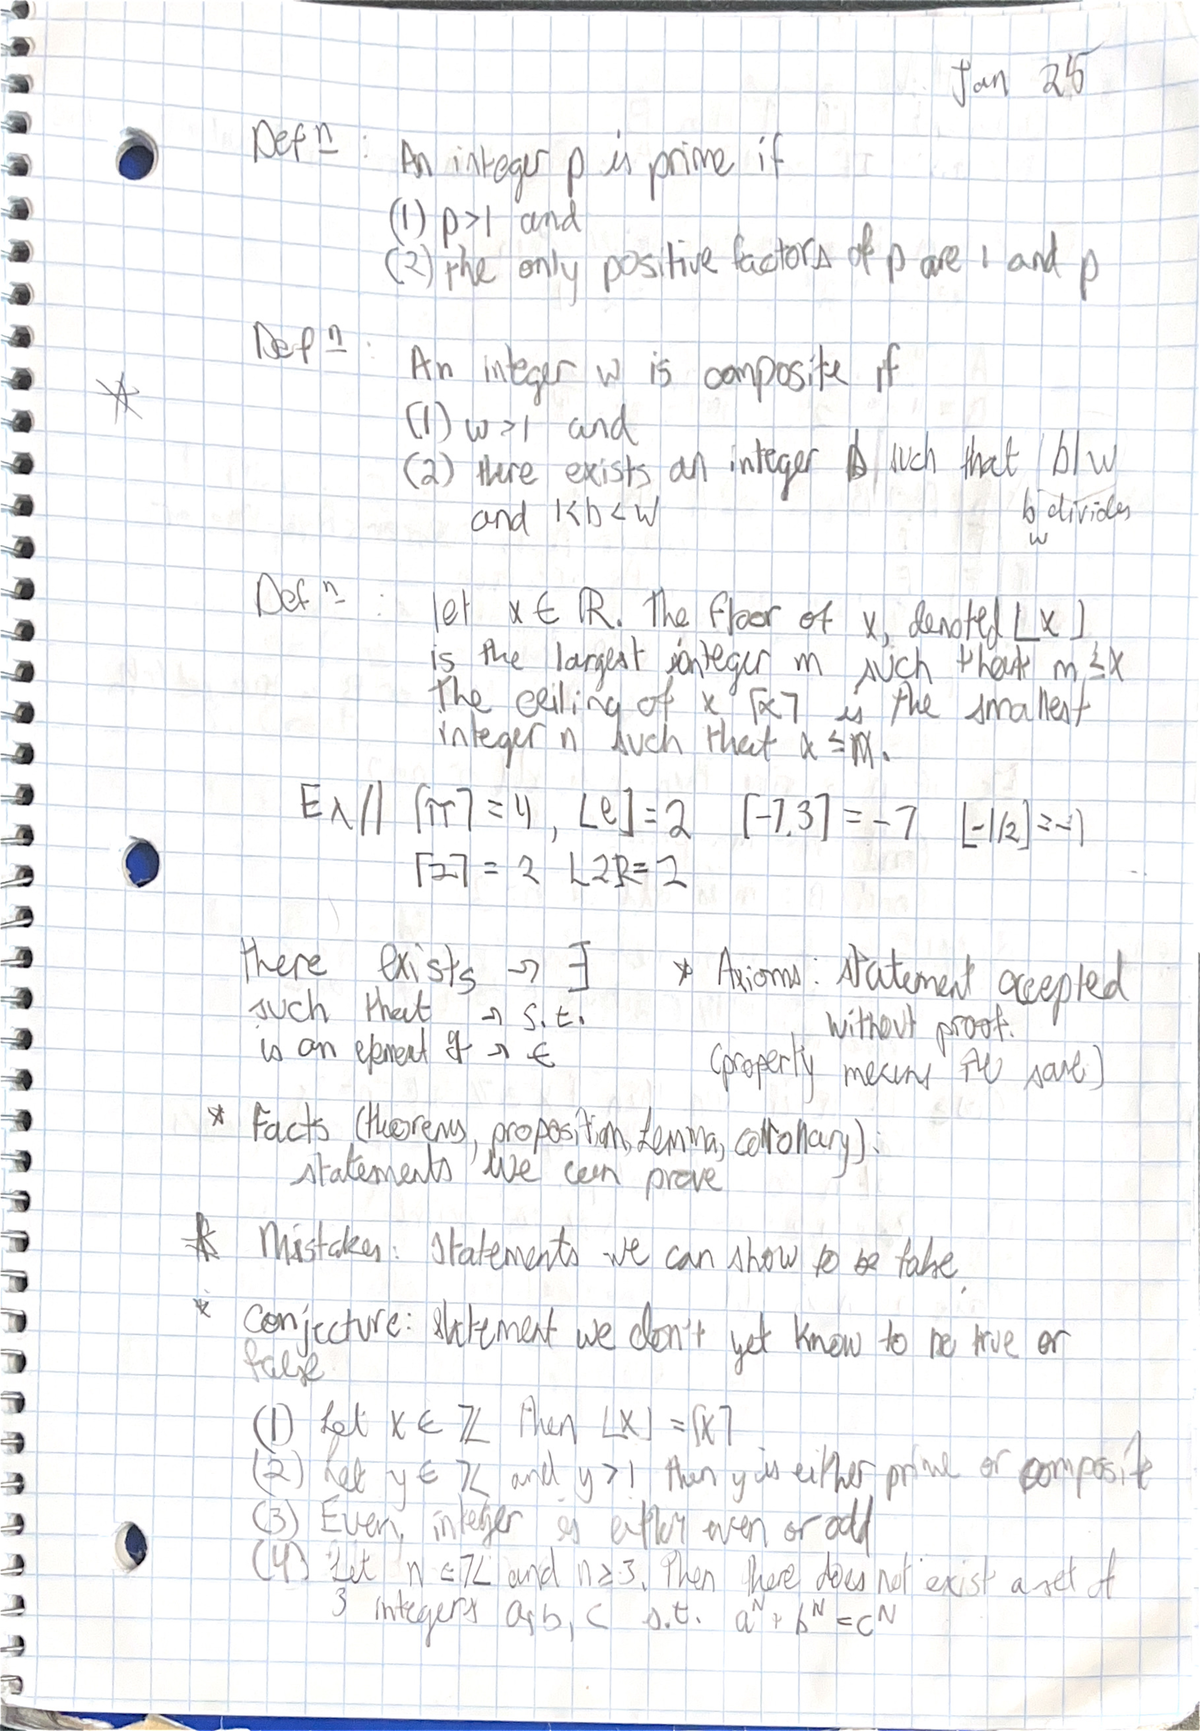 Jan 25
Defn : An integer p is prime if
(1) p>1 and
(2) the only positive factors of p are 1 and p
Defn : An integer w is composite if
(1) w>1 and
(2) there exists an integer b such that b|w
and 1<b<w
b divides
w
Defn : let x ∈ ℝ. The floor of x, denoted ⌊x⌋
is the largest integer m such that m ≤ x
The ceiling of x ⌈x⌉ is the smallest
integer n such that x ≤ n.
Ex// ⌈π⌉ = 4, ⌊e⌋ = 2 ⌈-7.3⌉ = -7 ⌊-1/2⌋ = -1
⌈2⌉ = 2 ⌊2⌋ = 2
there exists → ∃
such that → s.t.
is an element of → ∈
* Axioms: statement accepted
without proof.
(property means the same)
* Facts (theorems, proposition, Lemma, corrollary):
statements we can prove
* Mistakes: statements we can show to be false.
* Conjecture: statement we don't yet know to be true or
false
(1) Let x ∈ ℤ then ⌊x⌋ = ⌈x⌉
(2) Let y ∈ ℤ and y > 1 then y is either prime or composite
(3) Every integer is either even or odd
(4) Let n ∈ ℤ and n ≥ 3. Then there does not exist a set of
3 integers a, b, c s.t. a^N + b^N = c^N